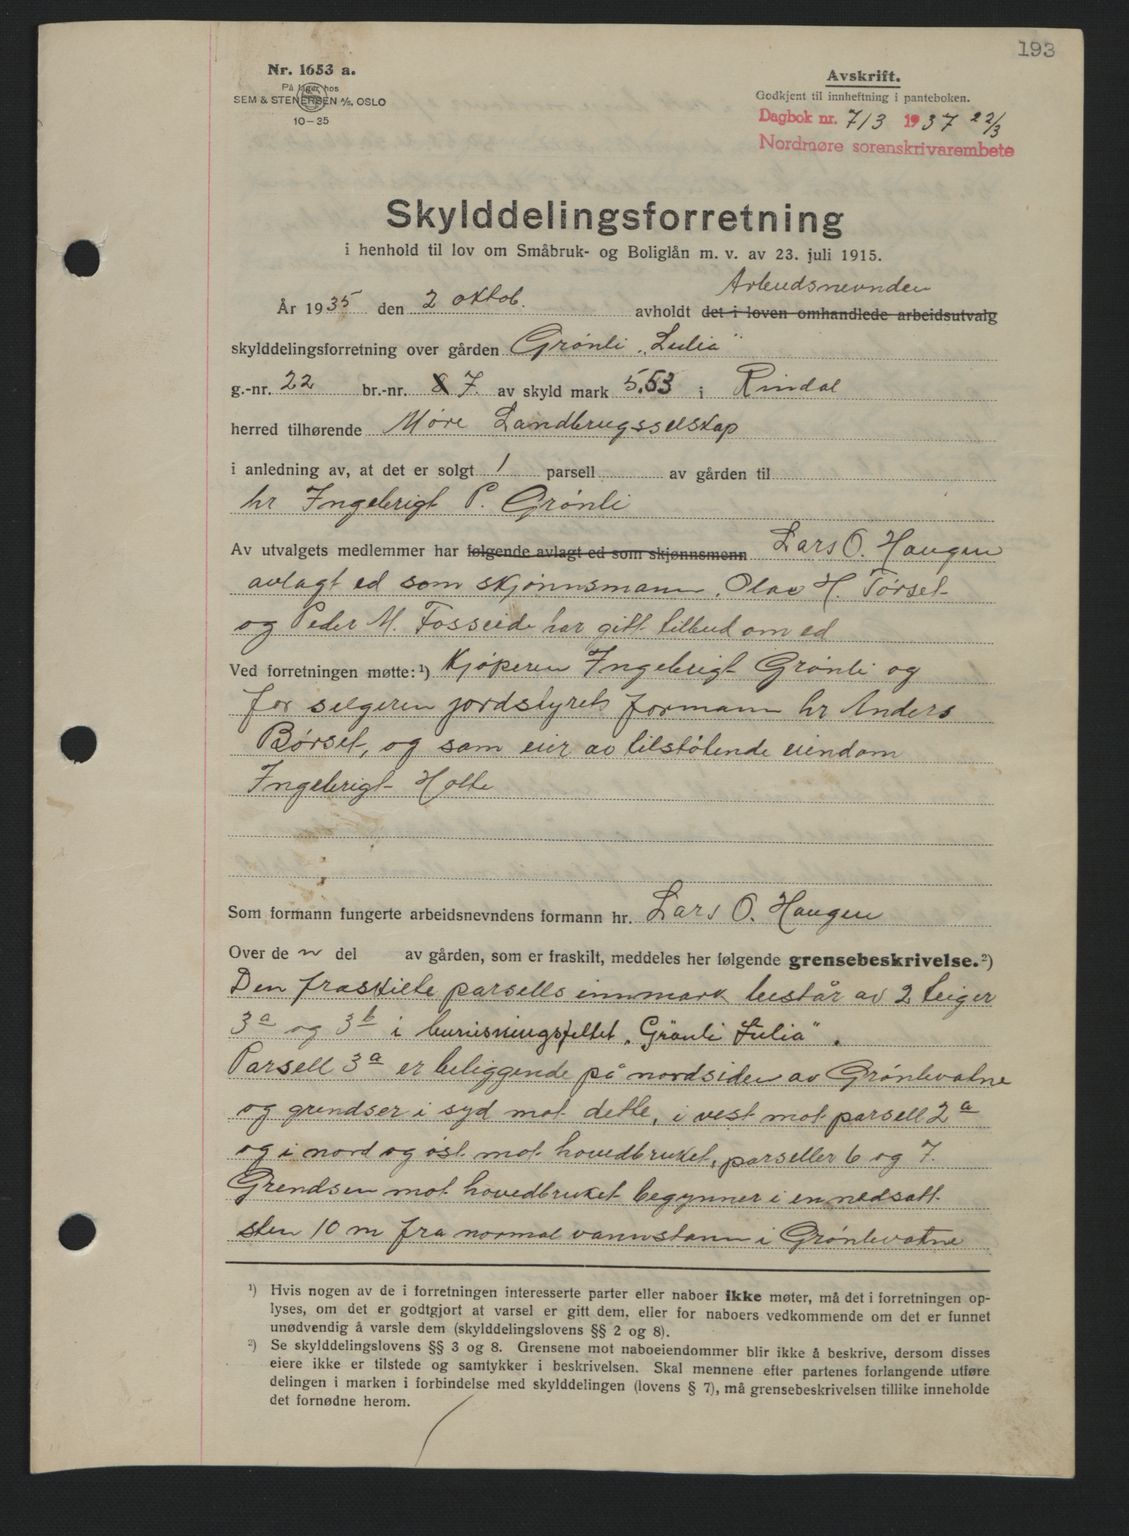 193
Nr. 1653 a.
På lager hos
SEM & STENERSEN A/S, OSLO
10-35
Avskrift.
Godkjent til innheftning i panteboken.
Dagbok nr. 713 1937 22/3
Nordmøre sorenskrivarembete
Skylddelingsforretning
i henhold til lov om Småbruk- og Boliglån m. v. av 23. juli 1915.
Arbeidsnevnden
År 1935 den 2 oktob. avholdt det i loven omhandlede arbeidsutvalg
skylddelingsforretning over gården Grønli „Lulia"
g.-nr. 22 br.-nr. 8 7. av skyld mark 5.53 i Rindal
herred tilhørende Møre Landbrugsselskap
i anledning av, at det er solgt 1 parsell av gården til
hr Ingebrigt P. Grønli
Av utvalgets medlemmer har følgende avlagt ed som skjønnsmenn Lars O. Haugen
avlagt ed som skjønnsmann, Olav H. Tørset
og Peder M. Fosseide har gitt tilbud om ed
Ved forretningen møtte: ¹) Kjøperen Ingebrigt Grønli og
for selgeren jordstyrets formann hr Anders
Børset, og som eier av tilstøtende eiendom
Ingebrigt Holte
Som formann fungerte arbeidsnevndens formann hr. Lars O. Haugen
Over de n del av gården, som er fraskilt, meddeles her følgende grensebeskrivelse.²)
Den fraskilte parsells innmark består av 2 teiger
3a og 3b i bureisningsfeltet „Grönli Lulia".
Parsell 3a er beliggende på nordsiden av Grønlivatne
og grendser i syd mot dette, i vest mot parsell 2a
og i nord og øst mot hovedbruket, parseller 6 og 7.
Grendsen mot hovedbruket begynner i en nedsatt
sten 10 m fra normal vannstann i Grønlivatne
¹) Hvis nogen av de i forretningen interesserte parter eller naboer ikke møter, må det i forretningen op-
lyses, om det er godtgjort at varsel er gitt dem, eller for naboers vedkommende om det er funnet
unødvendig å varsle dem (skylddelingslovens §§ 2 og 8).
²) Se skylddelingslovens §§ 3 og 8. Grensene mot naboeiendommer blir ikke å beskrive, dersom disses
eiere ikke er tilstede og samtykker i beskrivelsen. Skal mennene efter partenes forlangende utføre
delingen i marken i forbindelse med skylddelingen (lovens § 7), må grensebeskrivelsen tillike inneholde
det fornødne herom.